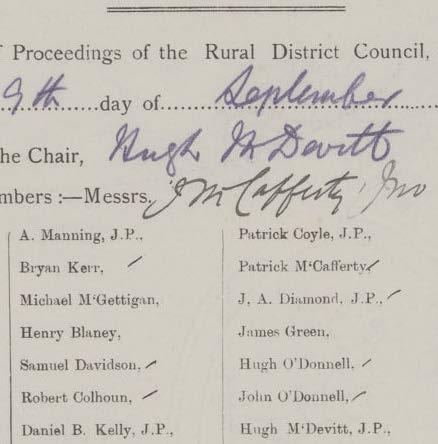 Proceedings of the Rural District Council,
9th day of September
he Chair, Hugh McDevitt
mbers :—Messrs. J McCafferty, Jno
A. Manning, J.P., Patrick Coyle, J.P.,
Bryan Kerr, Patrick M‘Cafferty,
Michael M‘Gettigan, J. A. Diamond, J.P.,
Henry Blaney, James Green,
Samuel Davidson, Hugh O’Donnell,
Robert Colhoun, John O’Donnell,
Daniel B. Kelly, J.P., Hugh M‘Devitt, J.P.,